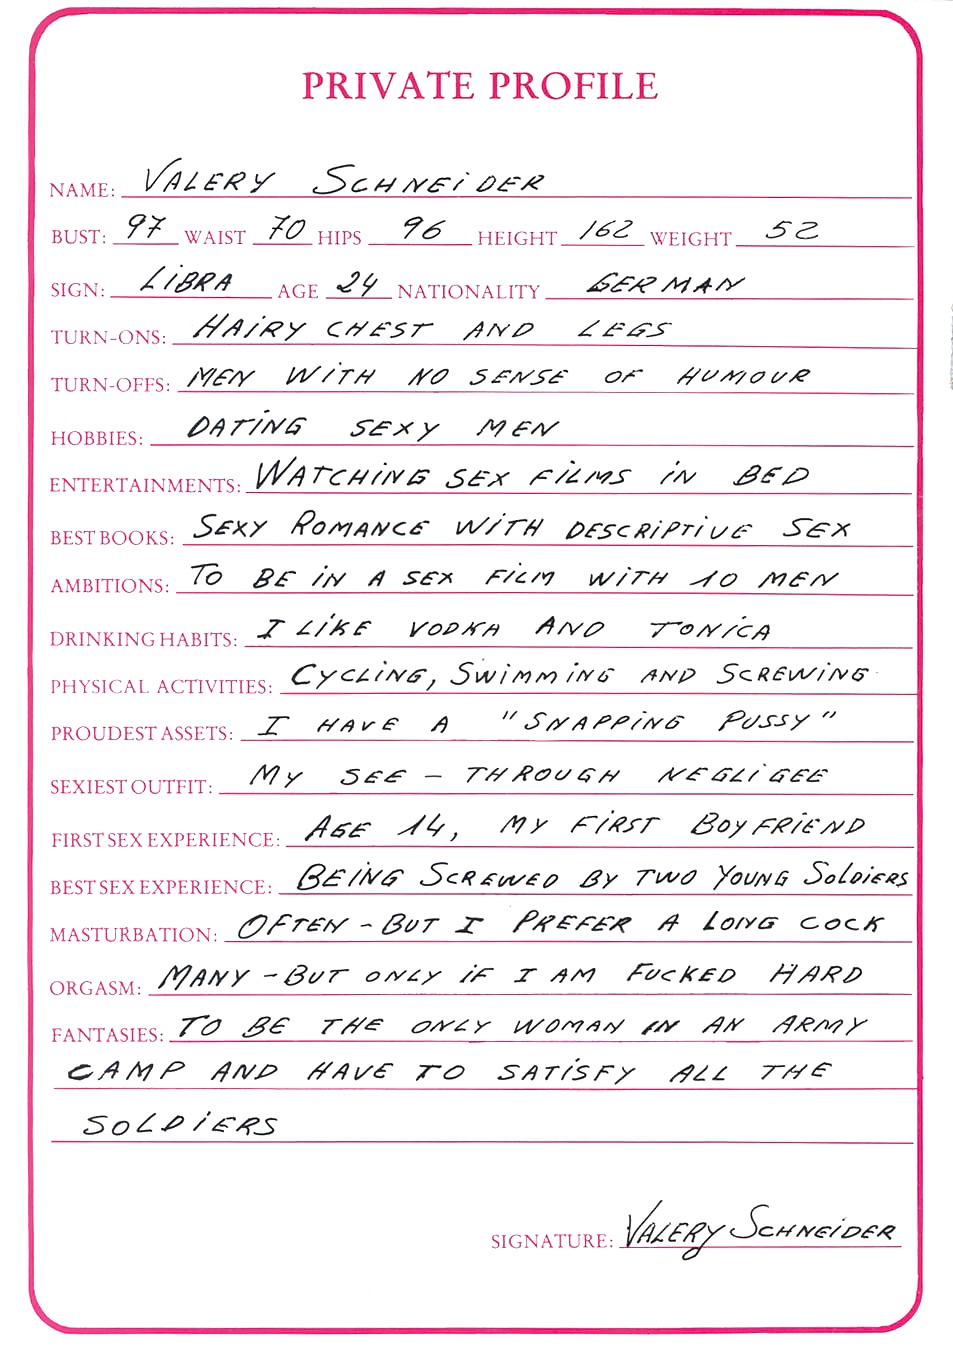 PRIVATE PROFILE
NAME: VALERY SCHNEIDER
BUST: 97 WAIST 70 HIPS 96 HEIGHT 162 WEIGHT 52
SIGN: LIBRA AGE 24 NATIONALITY GERMAN
TURN-ONS: HAIRY CHEST AND LEGS
TURN-OFFS: MEN WITH NO SENSE OF HUMOUR
HOBBIES: DATING SEXY MEN
ENTERTAINMENTS: WATCHING SEX FILMS IN BED
BEST BOOKS: SEXY ROMANCE WITH DESCRIPTIVE SEX
AMBITIONS: TO BE IN A SEX FILM WITH 10 MEN
DRINKING HABITS: I LIKE VODKA AND TONICA
PHYSICAL ACTIVITIES: CYCLING, SWIMMING AND SCREWING
PROUDEST ASSETS: I HAVE A "SNAPPING PUSSY"
SEXIEST OUTFIT: MY SEE - THROUGH NEGLIGEE
BEST SEX EXPERIENCE: BEING SCREWED BY TWO YOUNG SOLDIERS
MASTURBATION: OFTEN - BUT I PREFER A LONG COCK
ORGASM: MANY - BUT ONLY IF I AM FUCKED HARD
FANTASIES: TO BE THE ONLY WOMAN IN AN ARMY
CAMP AND HAVE TO SATISFY ALL THE
SOLDIERS
SIGNATURE: VALERY SCHNEIDER